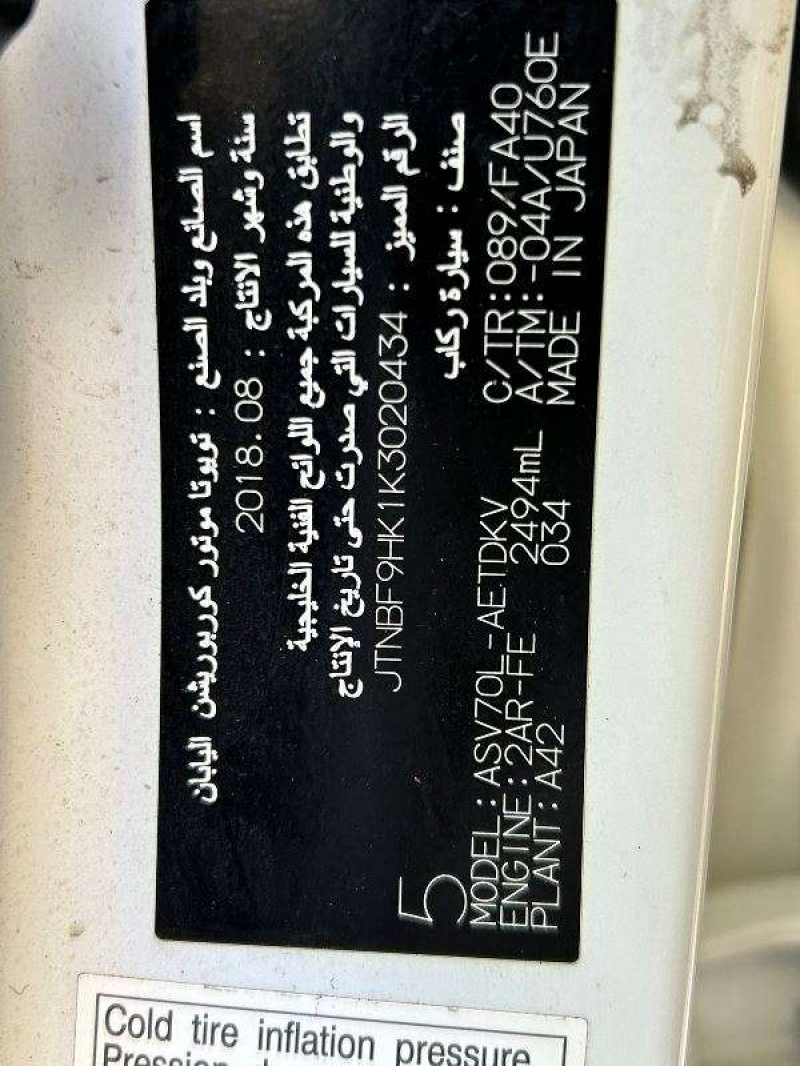 اسم الصانع وبلد الصنع : تويوتا موتور كوربوريشن اليابان
سنة وشهر الانتاج : 2018.08
تطابق هذه المركبة جميع اللوائح الفنية الخليجية
والوطنية للسيارات التي صدرت حتى تاريخ الإنتاج
الرقم المميز : JTNBF9HK1K3020434
صنف : سيارة ركاب
5
MODEL:ASV70L-AETDKV C/TR:089/FA40
ENGINE:2AR-FE 2494mL A/TM:-04A/U760E
PLANT:A42 034 MADE IN JAPAN
Cold tire inflation pressure
Pression